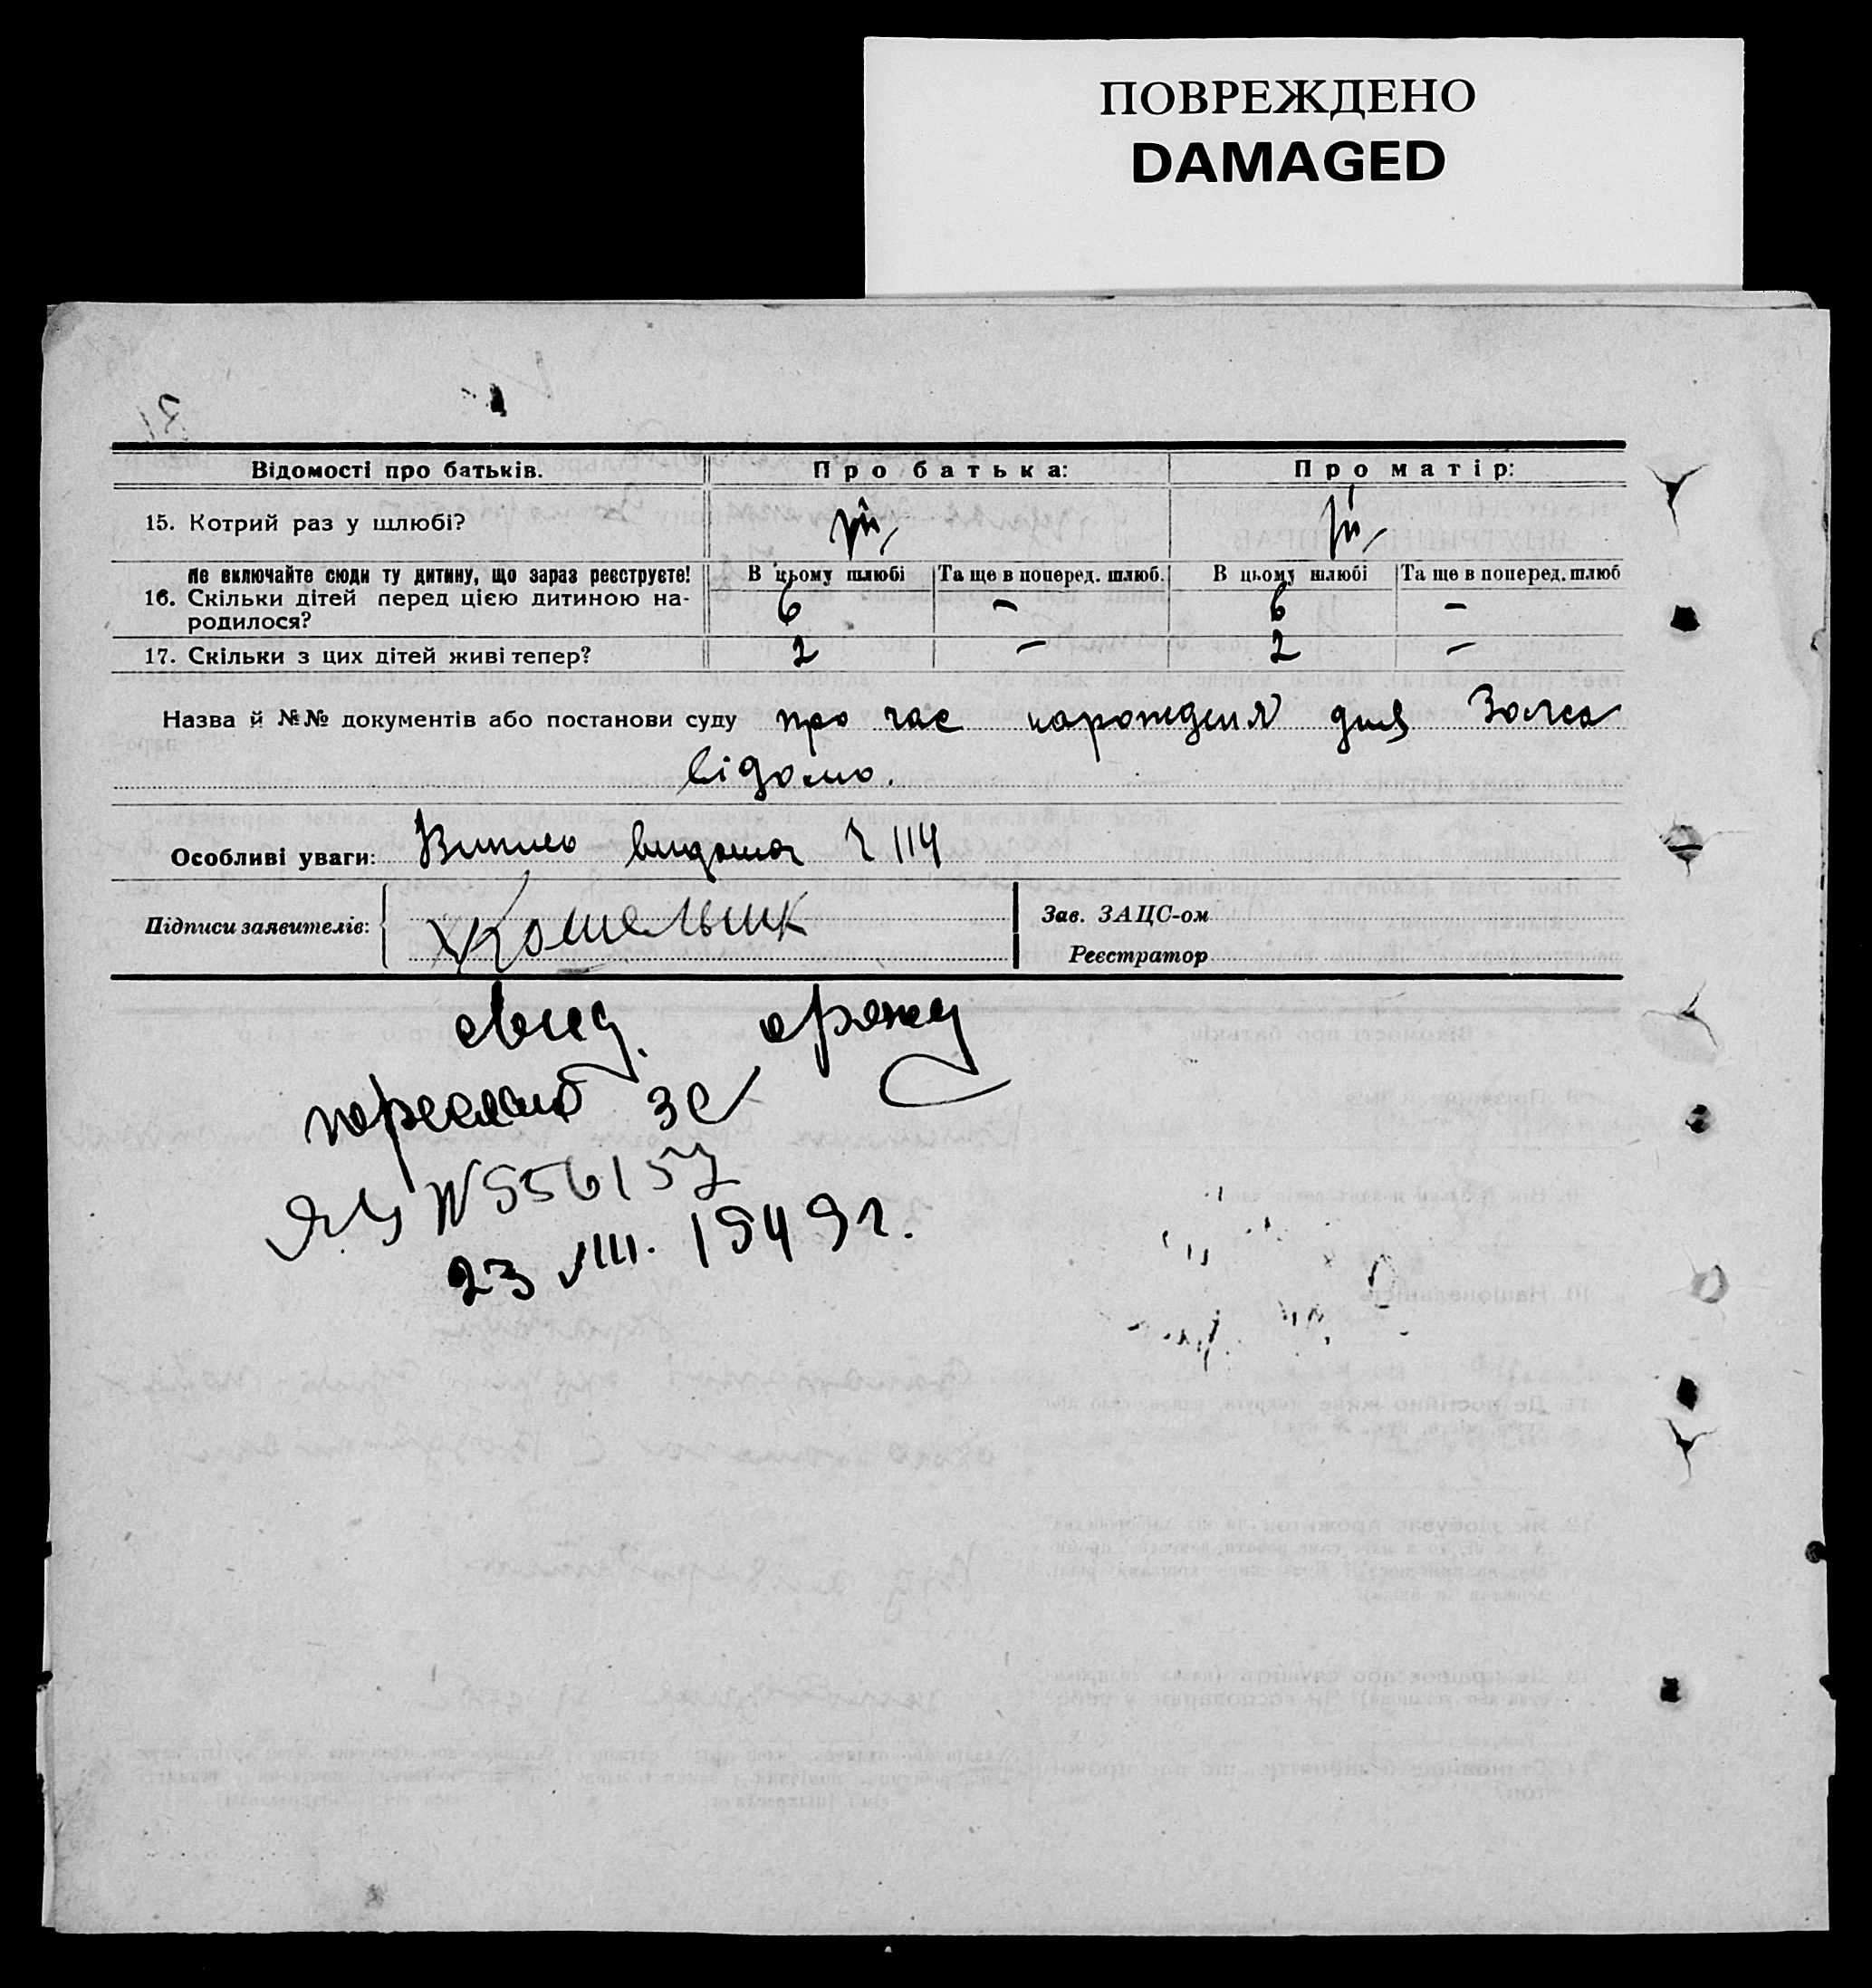 ПОВРЕЖДЕНО
DAMAGED
Відомості про батьків. Про батька: Про матір:
15. Котрий раз у шлюбі?
Не включайте сюди ту дитину, що зараз реєструєте! В цьому шлюбі Та ще в поперед. шлюб. В цьому шлюбі Та ще в поперед. шлюб
16. Скільки дітей перед цією дитиною на-
родилося? 6 – 6 –
17. Скільки з цих дітей живі тепер? 2 – 2 –
Назва й №№ документів або постанови суду про час народження для
відомо.
Особливі уваги: 114
Підписи заявителів: Кошельник Зав. ЗАЦС-ом
Реєстратор
свид. о рожд
N 556157
23 VIII. 1949 г.